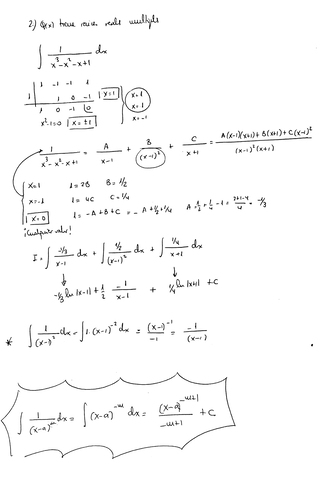 2.) Q(x) tiene raíces reales múltiples
∫ 1/(x³-x²-x+1) dx
1 -1 -1 1
1 | 1 0 -1 | x=1
1 0 -1 |0
x=1
x=1
x=-1
x²-1=0 | x=±1
1/(x³-x²-x+1) = A/(x-1) + B/(x-1)² + C/(x+1) = (A(x-1)(x+1)+B(x+1)+C(x-1)²)/((x-1)²(x+1))
x=1 1=2B B=1/2
x=-1 1=4C C=1/4
x=0 1=-A+B+C = -A+1/2+1/4 A=1/2+1/4-1=(2+1-4)/4=-1/3
¡Cualquier valor!
I=∫ (-1/3)/(x-1) dx + ∫ (1/2)/(x-1)² dx + ∫ (1/4)/(x+1) dx
-1/3 ln|x-1| + 1/2 · -1/(x-1) + 1/4 ln|x+1| + C
* ∫ 1/(x-1)² dx = ∫ 1·(x-1)⁻² dx = (x-1)⁻¹/-1 = -1/(x-1)
∫ 1/(x-a)ᵐ dx = ∫ (x-a)⁻ᵐ dx = (x-a)⁻ᵐ⁺¹/(-m+1) + C